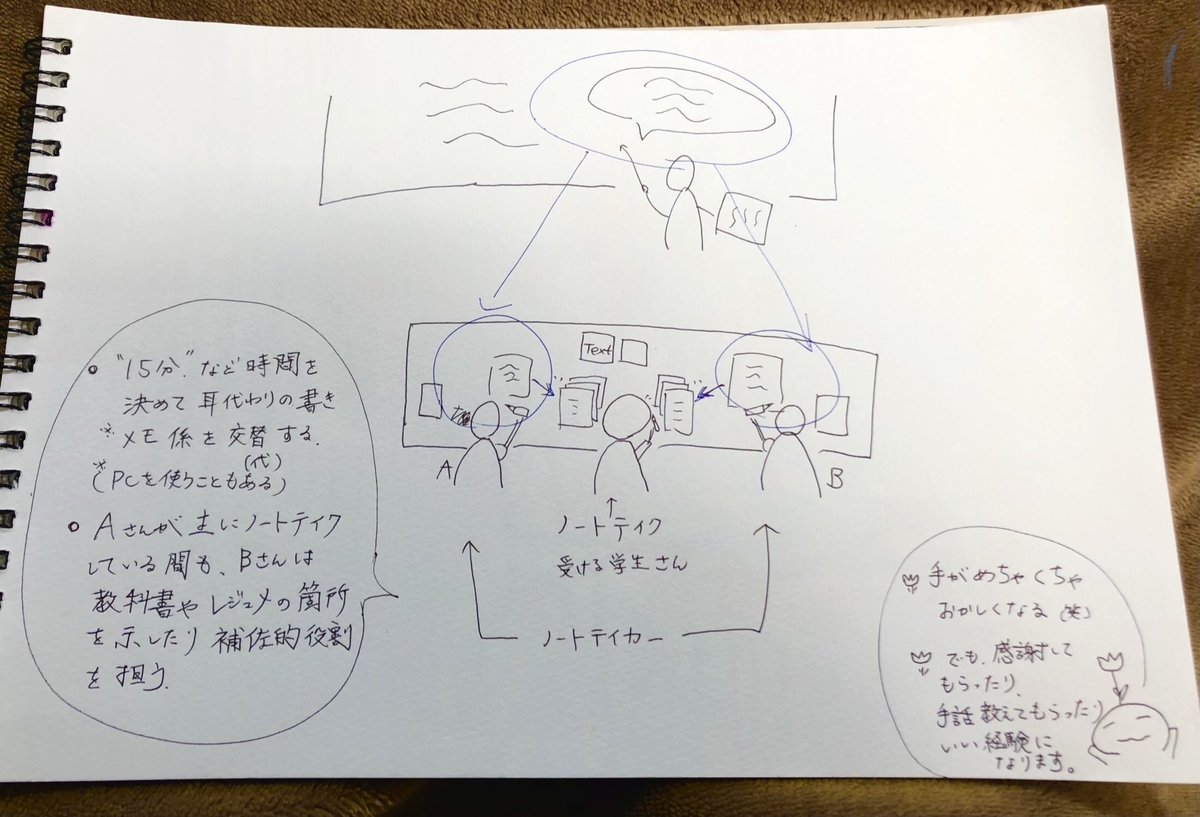 Text
A
B
ノートテイク
受ける学生さん
ノートテイカー
• "15分"など時間を
決めて 耳代わりの書き
※メモ係を交替する.
(代)
※(PCを使うこともある)
• Aさんが主にノートテイク
している間も、Bさんは
教科書や レジュメの箇所
を示したり 補佐的役割
を担う.
手がめちゃくちゃ
おかしくなる(笑)
でも、感謝して
もらったり、
手話教えてもらったり
いい経験に
なります。